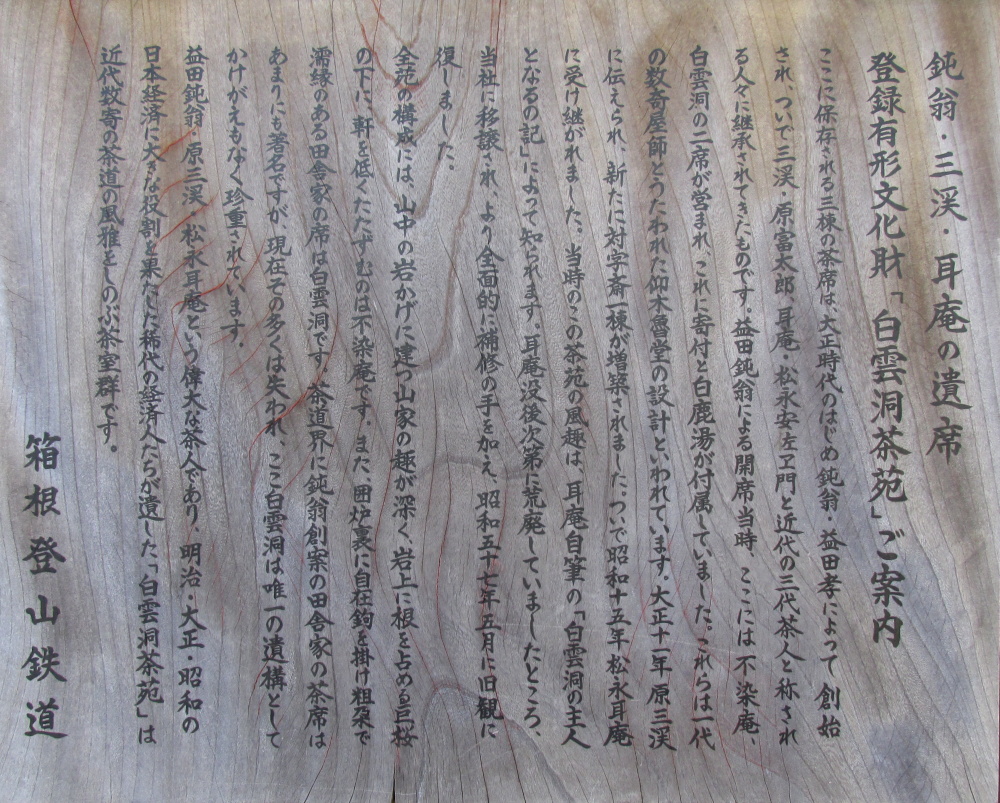 鈍翁・三渓・耳庵の遺席
登録有形文化財「白雲洞茶苑」ご案内
ここに保存される三棟の茶席は、大正時代のはじめ鈍翁・益田孝によって創始
され、ついで三渓・原富太郎、耳庵・松永安左ヱ門と近代の三代茶人と称され
る人々に継承されてきたものです。益田鈍翁による開席当時、ここには不染庵、
白雲洞の二席が営まれ、これに寄付と白鹿湯が付属していました。これらは一代
の数奇屋師とうたわれた仰木魯堂の設計といわれています。大正十一年原三渓
に伝えられ、新たに対字斎一棟が増築されました。ついで昭和十五年松永耳庵
に受け継がれました。当時のこの茶苑の風趣は、耳庵自筆の「白雲洞の主人
となるの記」によって知られます。耳庵没後次第に荒廃していましたところ、
当社に移譲され、より全面的に補修の手を加え、昭和五十七年五月に旧観に
復しました。
全苑の構成には、山中の岩かげに建つ山家の趣が深く、岩上に根を占める巨桜
の下に、軒を低くたたずむのは不染庵です。また、囲炉裏に自在鉤を掛け粗朶で
濡縁のある田舎家の席は白雲洞です。茶道界に鈍翁創案の田舎家の茶席は
あまりにも著名ですが、現在その多くは失われ、ここ白雲洞は唯一の遺構として
かけがえもなく珍重されています。
益田鈍翁・原三渓・松永耳庵という偉大な茶人であり、明治・大正・昭和の
日本経済に大きな役割を果たした稀代の経済人たちが遺した、「白雲洞茶苑」は
近代数寄の茶道の風雅をしのぶ茶室群です。
箱根登山鉄道